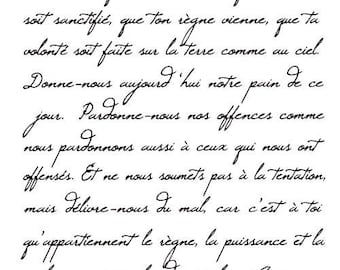 soit sanctifié, que ton règne vienne, que ta
volonté soit faite sur la terre comme au ciel.
Donne-nous aujourd'hui notre pain de ce
jour. Pardonne-nous nos offences comme
nous pardonnons aussi à ceux qui nous ont
offensés. Et ne nous soumets pas à la tentation,
mais délivre-nous du mal, car c'est à toi
qu'appartiennent le règne, la puissance et la